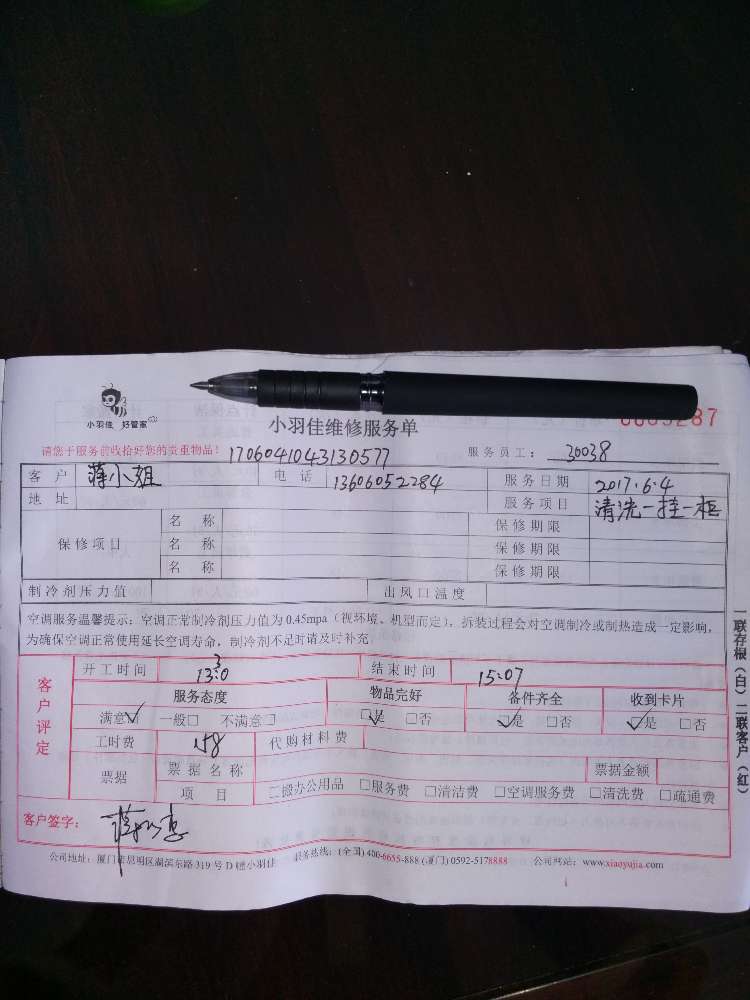 小羽佳 好管家
小羽佳维修服务单
287
请您于服务前收拾好您的贵重物品！ 1706041043130577 服务员工： 30038
客户 蒋小姐 电话 13606052284 服务日期 2017.6.4
地址 服务项目 清洗一挂一柜
保修项目 名称 保修期限
名称 保修期限
名称 保修期限
制冷剂压力值 出风口温度
空调服务温馨提示：空调正常制冷剂压力值为0.45mpa（视环境、机型而定），拆装过程会对空调制冷或制热造成一定影响，
为确保空调正常使用延长空调寿命，制冷剂不足时请及时补充
客户评定
开工时间 结束时间 15:07
服务态度 物品完好 备件齐全 收到卡片
满意☑ 一般□ 不满意□ ☑是 □否 ☑是 □否 ☑是 □否
工时费 158 代购材料费
票据 票据名称 票据金额
项目 □搬办公用品 □服务费 □清洁费 □空调服务费 □清洗费 □疏通费
客户签字：
公司地址：厦门市思明区湖滨东路319号D幢小羽佳 服务热线：(全国)400-6655-888 (厦门)0592-5178888 公司网站：www.xiaoyujia.com
一联存根（白）二联客户（红）